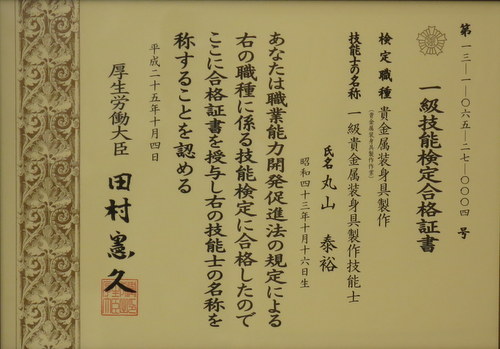 第一三―一―〇六五―二七―〇〇〇四号
一級技能検定合格証書
検定職種 貴金属装身具製作
(貴金属装身具製作作業)
技能士の名称 一級貴金属装身具製作技能士
氏名 丸山泰裕
昭和四十三年十月十六日生
あなたは職業能力開発促進法の規定による
右の職種に係る技能検定に合格したので
ここに合格証書を授与し右の技能士の名称を
称することを認める
平成二十五年十月四日
厚生労働大臣 田村憲久